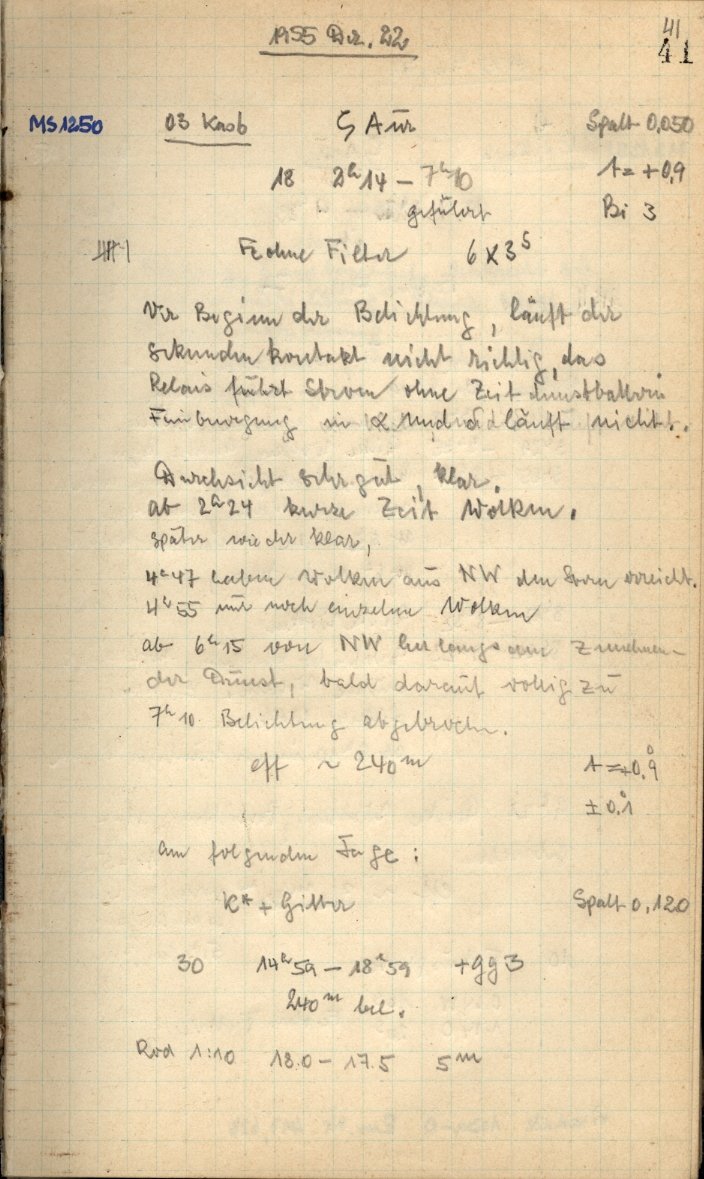 1955 Dez. 22
41
41
MS1250 03 Kasb ζ Aur Spalt 0,050
18 2h14 – 7h10 t = +0,9
geführt Bi 3
Fe ohne Filter 6 x 3s
Vor Beginn der Belichtung, läuft der
Sekundenkontakt nicht richtig, das
Relais führt Strom ohne Zeitdienstbatterie
Feinbewegung in α und δ läuft nicht!
Durchsicht sehr gut, klar.
ab 2h24 kurze Zeit Wolken.
später wieder klar,
4h47 haben Wolken aus NW den Stern erreicht.
4h55 nur noch einzelne Wolken
ab 6h15 von NW her langsam Zunehmen-
der Dunst, bald darauf völlig zu
7h10 Belichtung abgebrochen.
eff ~ 240m t = +0,°9
± 0,°1
am folgenden Tage:
K* + Gitter Spalt 0,120
30 14h59 – 18h59 + gg3
240m bel.
1:10 18.0 – 17.5 5m